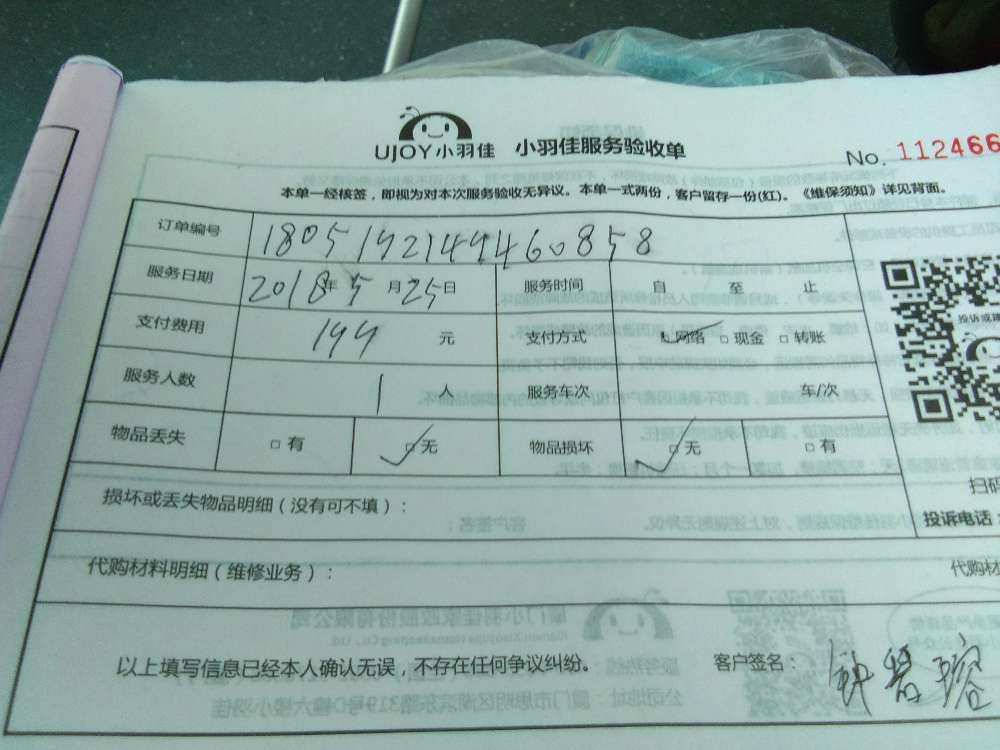 UJOY小羽佳 小羽佳服务验收单
No. 112466
本单一经接签，即视为对本次服务验收无异议。本单一式两份，客户留存一份(红)。《维保须知》详见背面。
订单编号
服务日期 2018年5月25日 服务时间 自 至 止
支付费用 199元 支付方式 网络 □现金 □转账
服务人数 1人 服务车次 车/次
物品丢失 □有 □无 物品损坏 □无 □有
投诉或建
扫码
投诉电话：
损坏或丢失物品明细（没有可不填）：
代购材料明细（维修业务）： 代购材
以上填写信息已经本人确认无误，不存在任何争议纠纷。 客户签名：